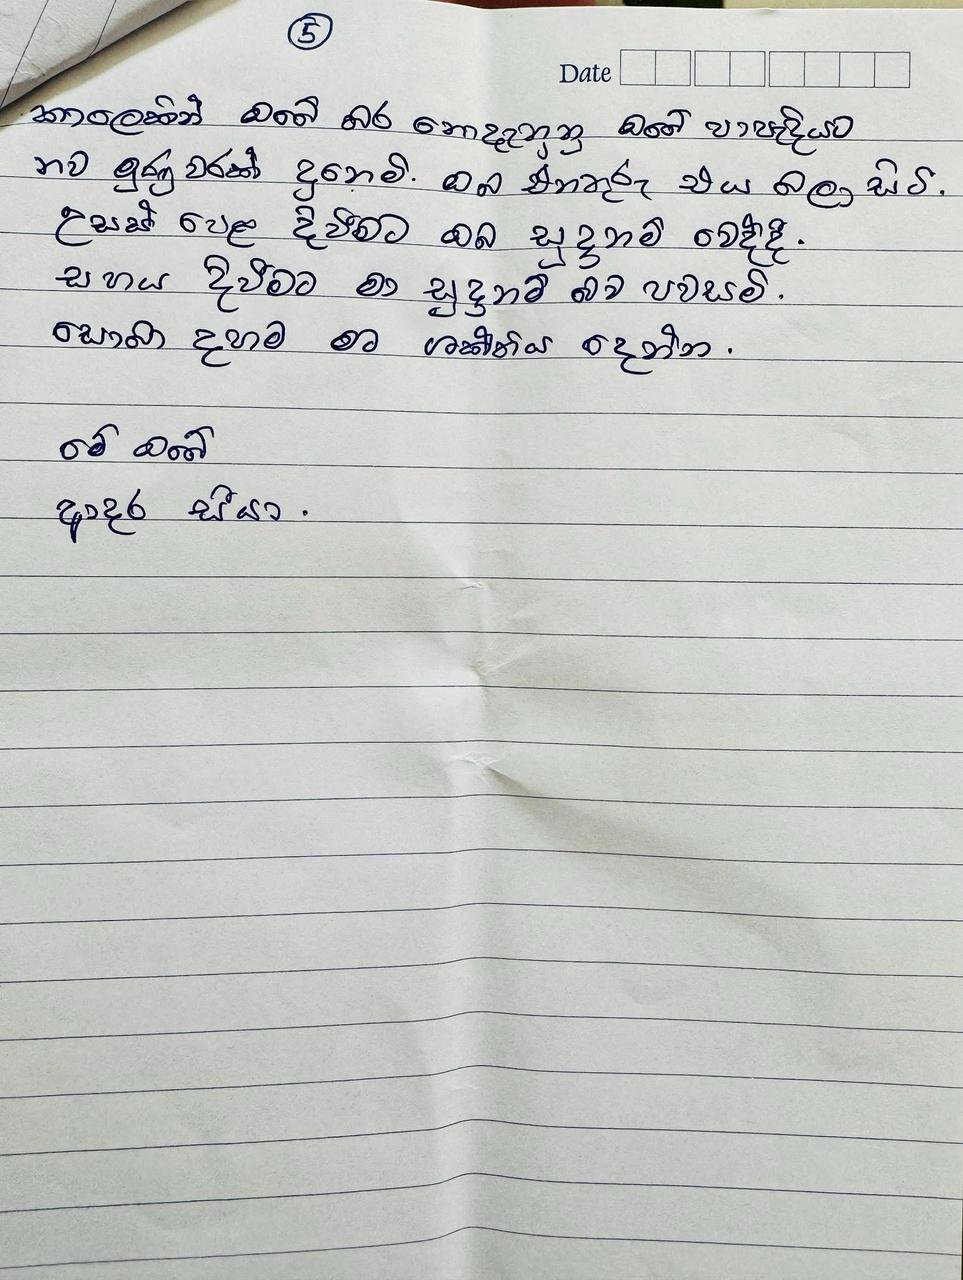 5
Date
කාලෙකින් ඔබේ බර නොදැනුනු ඔබේ පාපැදියට
නව මුණු වරක් දුනෙමි. ඔබ එනතුරු එය බලා සිටී.
උසස් පෙළ දිවීමට ඔබ සූදානම් වෙද්දී.
සහය දිවීමට මා සූදානම් බව පවසමි.
සොබා දහම මට ශක්තිය දෙන්න.
මේ ඔබේ
ආදර සීයා.